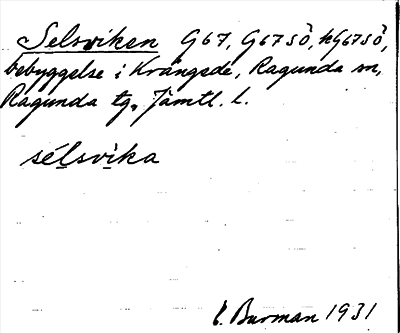 Selsviken G67, G67SÖ, hG67SÖ,
bebyggelse i Krångede, Ragunda sn,
Ragunda tg, Jämtl. l.
sélsvika
E. Burman 1931